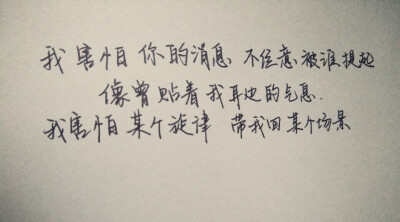 我害怕你的消息 不经意被谁提起
像曾贴着我耳边的气息.
我害怕某个旋律 带我回某个场景